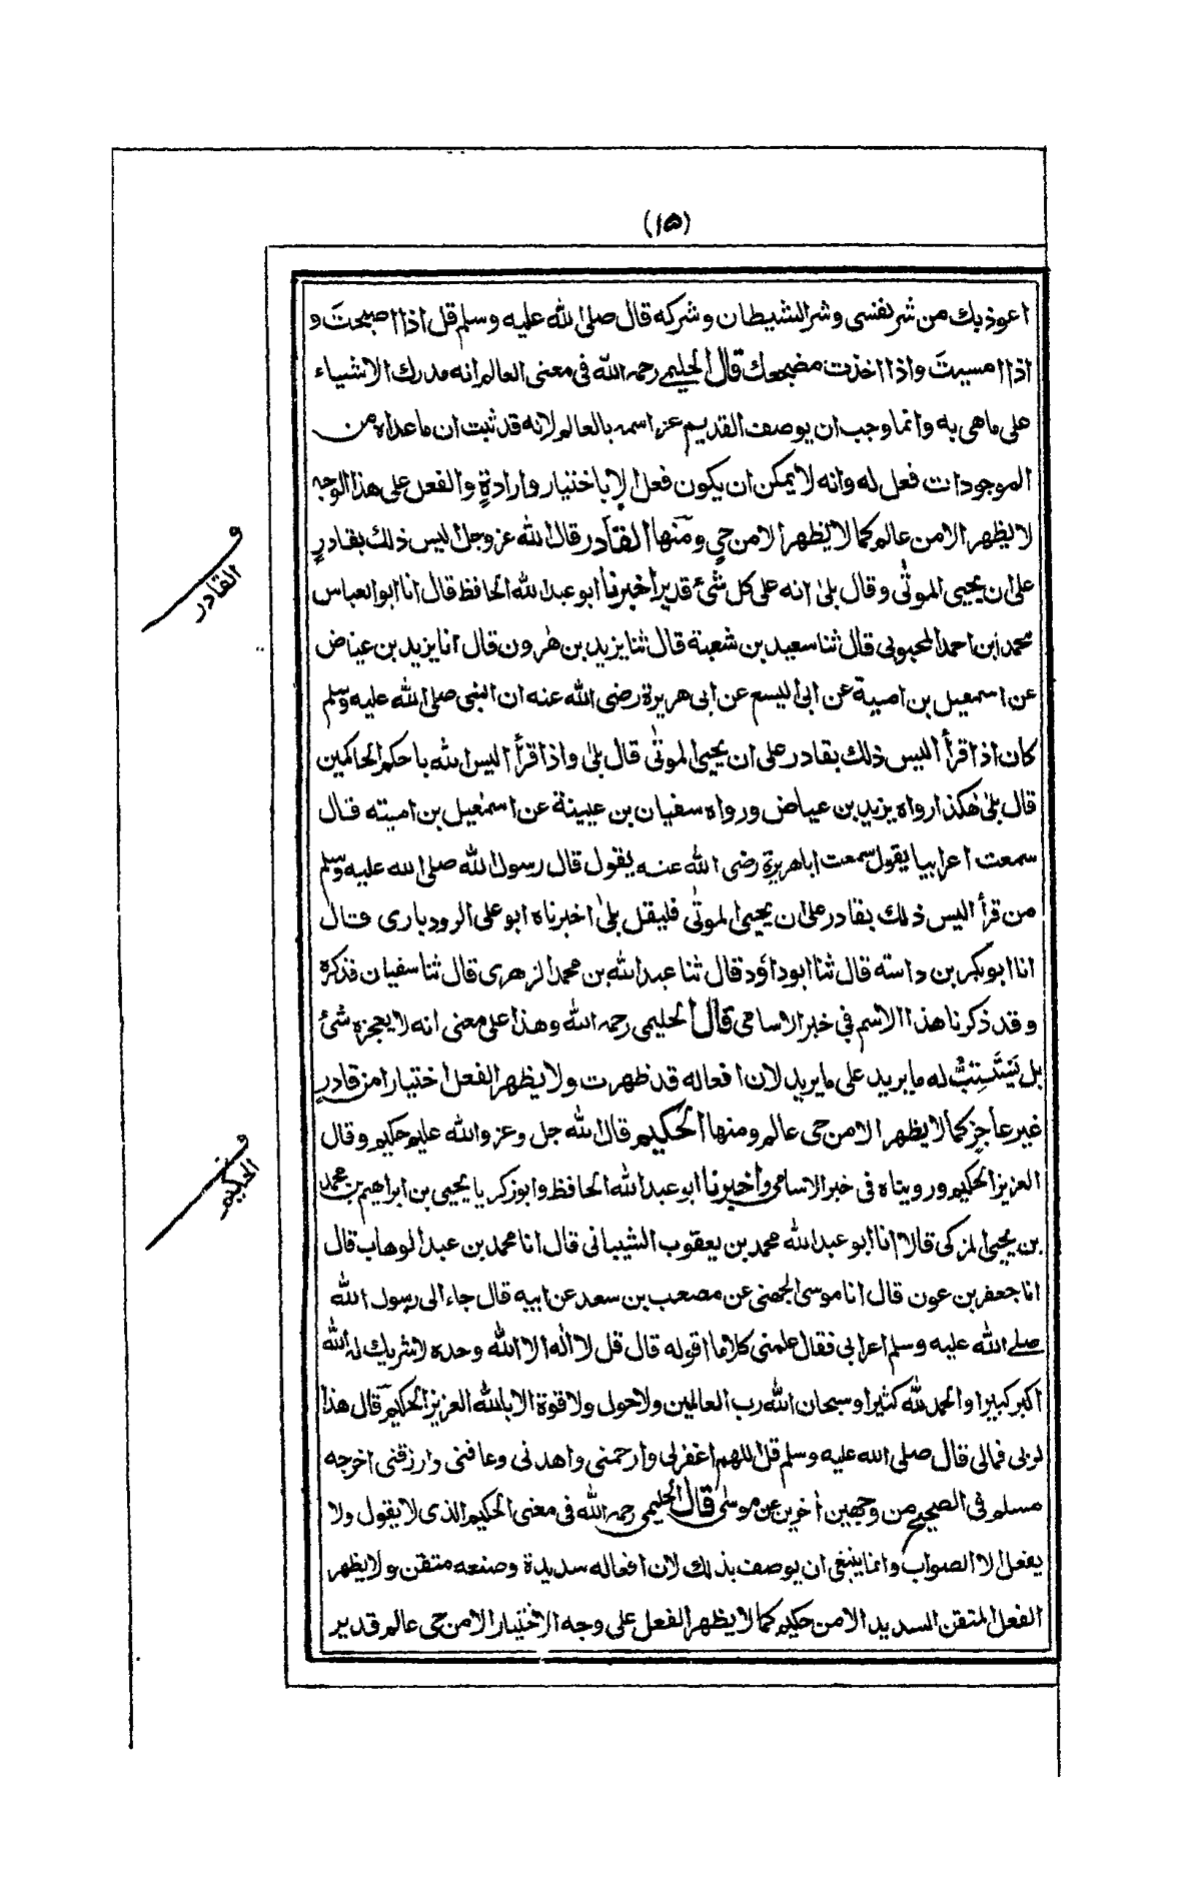 (١٥)
اعوذ بك من شر نفسى و شر الشيطان و شركه قال صلى الله عليه و سلم قل اذا اصبحتَ و
اذا امسيتَ و اذا اخذت مضجعك قال الحليمي رحمه الله فى معنى العالم انه مدرك الاشياء
على ما هى به و انما وجب ان يوصف القديم عز اسمه بالعالم لانه قد ثبت ان ما عداه من
الموجودات فعل له و انه لا يمكن ان يكون فعل الا باختيار و ارادةٍ و الفعل على هذا الوجه
لا يظهر الا من عالم كما لا يظهر الا من حيٍ و منها القادر قال الله عز وجل اليس ذلك بقادرٍ
على ان يحيى الموتٰى و قال بلىٰ انه على كل شئ قدير اخبرنا ابو عبد الله الحافظ قال انا ابو العباس
محمد ابن احمد المحبوبى قال ثنا سعيد بن شعبة قال ثنا يزيد بن هٰرون قال انا يزيد بن عياض
عن اسمعيل بن امية عن ابى اليسع عن ابى هريرة رضى الله عنه ان النبى صلى الله عليه وسلم
كان اذا قرأ اليس ذلك بقادر على ان يحيى الموتٰى قال بلىٰ و اذا قرأ اليس الله باحكم الحاكمين
قال بلىٰ هٰكذا رواه يزيد بن عياض و رواه سفيان بن عيينة عن اسمٰعيل بن اميته قال
سمعت اعرابيا يقول سمعت ابا هريرة رضى الله عنه يقول قال رسول الله صلى الله عليه وسلم
من قرأ اليس ذلك بقادر على ان يحيى الموتٰى فليقل بلىٰ اخبرناه ابو على الرودبارى قال
انا ابو بكر بن داسته قال ثنا ابو داؤد قال ثنا عبد الله بن محمد الزهرى قال ثنا سفيان فذكره
و قد ذكرنا هذا الاسم في خبر الاسامى قال الحليمى رحمه الله و هذا على معنى انه لا يعجزه شئ
بل يَسْتَتِبُّ له ما يريد على ما يريد لان افعاله قد ظهرت و لا يظهر الفعل اختيارا من قادرٍ
غير عاجزٍ كما لا يظهر الا من حى عالم و منها الحكيم قال الله جل وعز و الله عليم حكيم و قال
العزيز الحكيم و رويناه فى خبر الاسامى و اخبرنا ابو عبد الله الحافظ و ابو زكريا يحيى بن ابراهيم بن محمد
بن يحيى المزكى قالا انا ابو عبد الله محمد بن يعقوب الشيبانى قال انا محمد بن عبد الوهاب قال
انا جعفر بن عون قال انا موسى الجهنى عن مصعب بن سعد عن ابيه قال جاء الى رسول الله
صلى الله عليه وسلم اعرابى فقال علمنى كلاما اقوله قال قل لا الٰه الا الله وحده لا شريك له الله
اكبر كبيرا و الحمد لله كثيرا و سبحان الله رب العالمين و لا حول و لا قوة الا بالله العزيز الحكيم قال هذا
لربى فمالى قال صلى الله عليه وسلم قل اللهم اغفر لى و ارحمنى و اهدنى و عافنى و ارزقنى اخرجه
مسلم فى الصحيح من وجهين آخرين عن موسى قال الحليمى رحمه الله فى معنى الحكيم الذى لا يقول ولا
يفعل الا الصواب و انما ينبغى ان يوصف بذلك لان افعاله سديدة و صنعه متقن و لا يظهر
الفعل المتقن السديد الا من حكيم كما لا يظهر الفعل على وجه الاختيار الا من حى عالم قدير
القادر
الحكيم